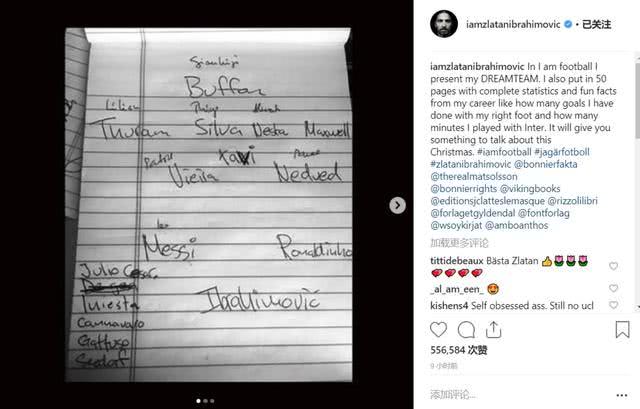 Gianluigi
Buffon
Lilian
Thiago
Thuram
Silva
Nesta
Maxwell
Patrick
Xavi
Pavel
Vieira
Nedved
Leo
Messi
Ronaldinho
Julio Cesar
Iniesta
Ibrahimović
Cannavaro
Gattuso
Seedorf
iamzlatanibrahimovic • 已关注
iamzlatanibrahimovic In I am football I
present my DREAMTEAM. I also put in 50
pages with complete statistics and fun facts
from my career like how many goals I have
done with my right foot and how many
minutes I played with Inter. It will give you
something to talk about this
Christmas. #iamfootball #jagärfotboll
#zlatanibrahimovic @bonnierfakta
@therealmatsolsson
@bonnierrights @vikingbooks
@editionsjclatteslemasque @rizzolilibri
@forlagetgyldendal @fontforlag
@wsoykirjat @amboanthos
加载更多评论
tittidebeaux Bästa Zlatan 👍🌷🌷🌷
💝💝💝💝
_al_am_een_ 😍
kishens4 Self obsessed ass. Still no ucl
556,584 次赞
9 小时前
添加评论...